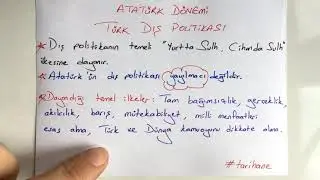 ATATÜRK DÖNEMİ
TÜRK DIŞ POLİTİKASI
* Dış politikanın temeli "Yurtta Sulh, Cihanda Sulh"
ilkesine dayanır.
* Atatürk'ün dış politikası yayılmacı değildir.
* Dayandığı temel ilkeler: Tam bağımsızlık, gerçeklik,
akılcılık, barış, mütekabiliyet, milli menfaatleri
esas alma, Türk ve Dünya kamuoyunu dikkate alma.
#tarihane